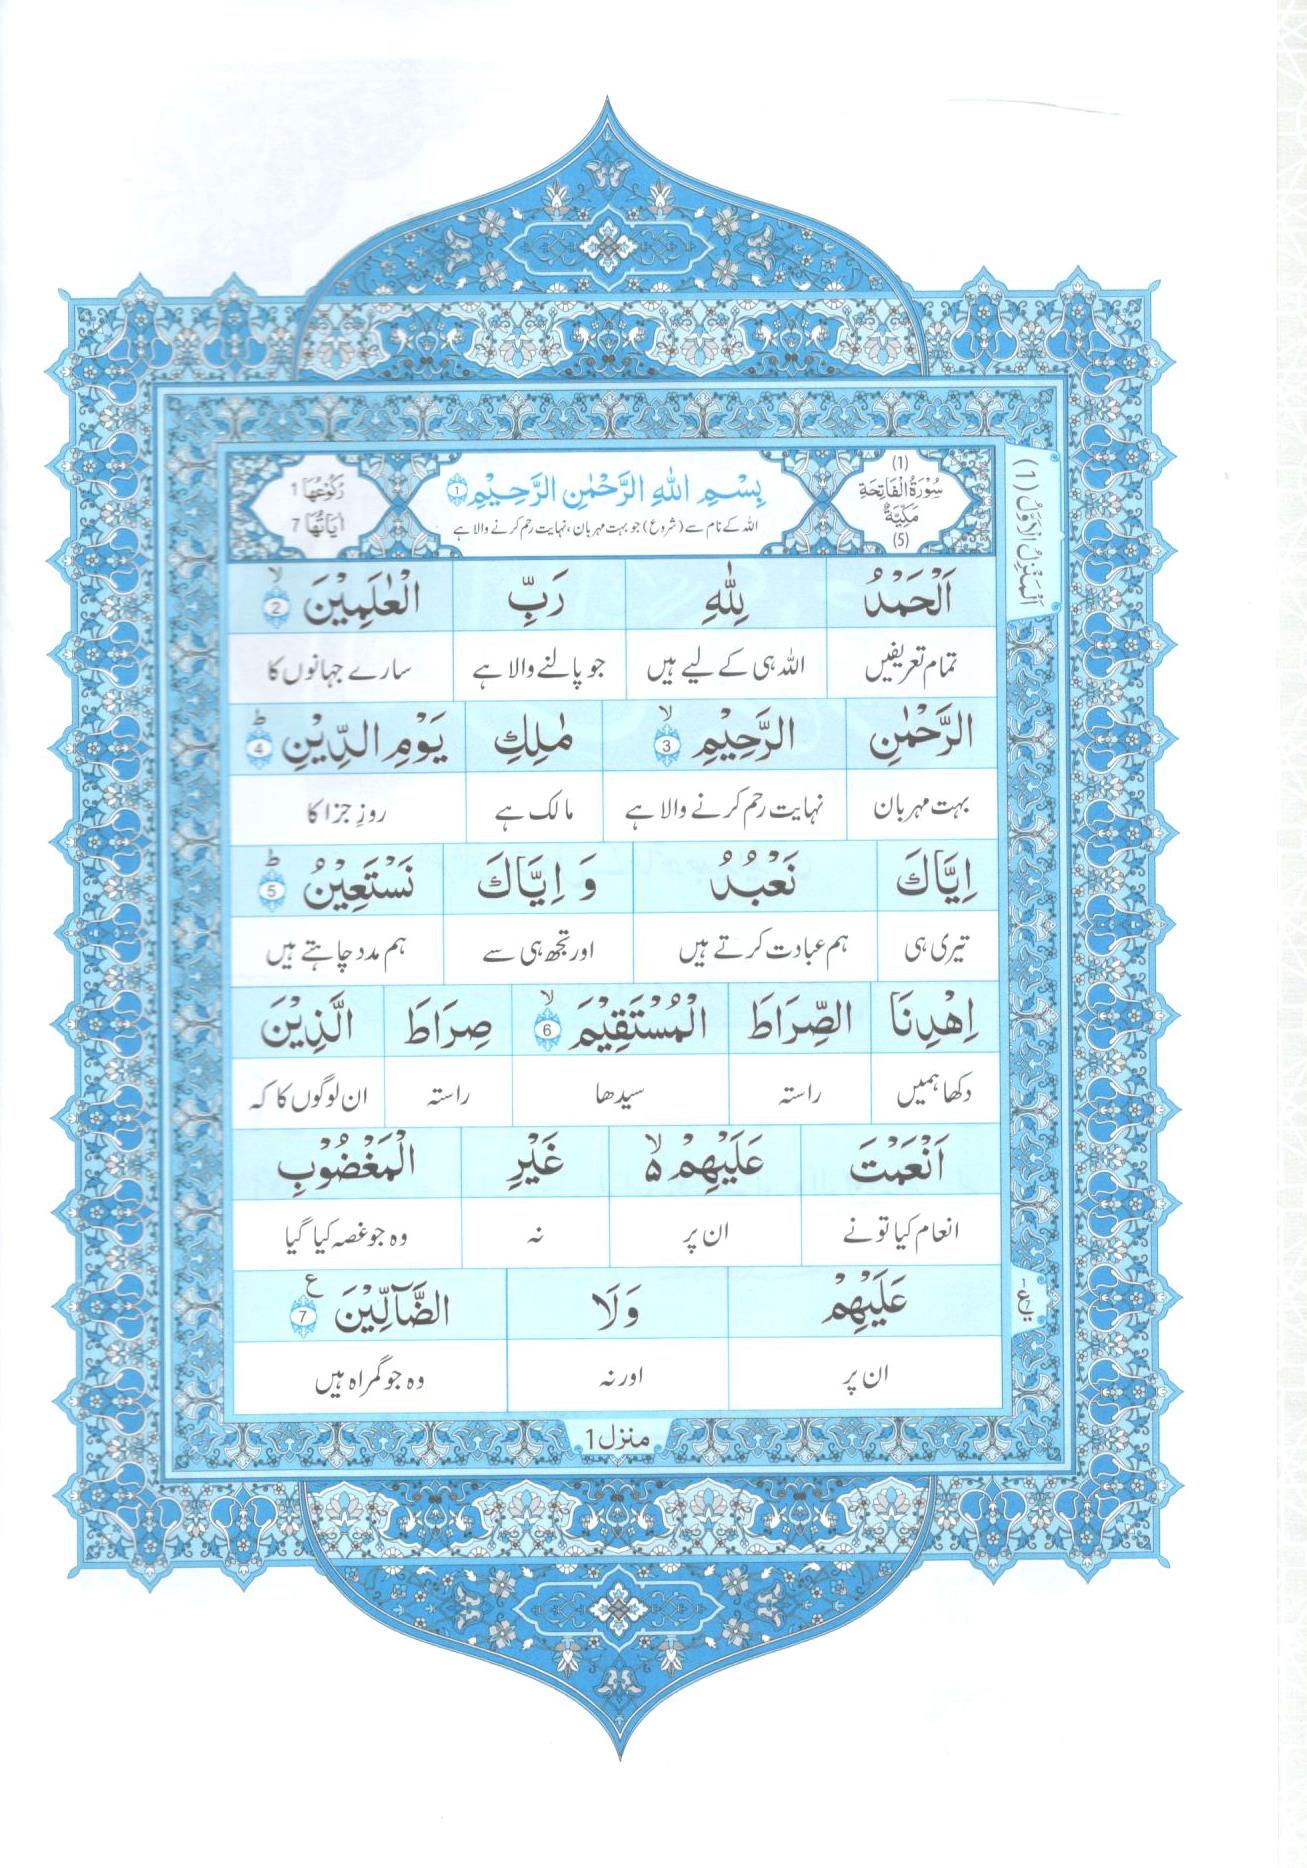 (1)
سُوْرَةُ الْفَاتِحَةِ
مَكِّيَّةٌ
(5)
بِسْمِ اللّٰهِ الرَّحْمٰنِ الرَّحِيْمِ 1
اللہ کے نام سے (شروع) جو بہت مہربان ،نہایت رحم کرنے والا ہے
رُكُوْعُهَا 1
اٰيَاتُهَا 7
اَلْمَنْزِلُ الْاَوَّلُ (1)
اَلْحَمْدُ لِلّٰهِ رَبِّ الْعٰلَمِيْنَ ۙ 2
تمام تعریفیں اللہ ہی کے لیے ہیں جو پالنے والا ہے سارے جہانوں کا
الرَّحْمٰنِ الرَّحِيْمِ ۙ 3 مٰلِكِ يَوْمِ الدِّيْنِ ؕ 4
بہت مہربان نہایت رحم کرنے والا ہے مالک ہے روزِ جزا کا
اِيَّاكَ نَعْبُدُ وَ اِيَّاكَ نَسْتَعِيْنُ ؕ 5
تیری ہی ہم عبادت کرتے ہیں اور تجھ ہی سے ہم مدد چاہتے ہیں
اِهْدِنَا الصِّرَاطَ الْمُسْتَقِيْمَ ۙ 6 صِرَاطَ الَّذِيْنَ
دکھا ہمیں راستہ سیدھا راستہ ان لوگوں کا کہ
اَنْعَمْتَ عَلَيْهِمْ ۙ۵ غَيْرِ الْمَغْضُوْبِ
انعام کیا تو نے ان پر نہ وہ جو غصہ کیا گیا
عَلَيْهِمْ وَلَا الضَّآلِّيْنَ ع 7
ان پر اور نہ وہ جو گمراہ ہیں
منزل 1